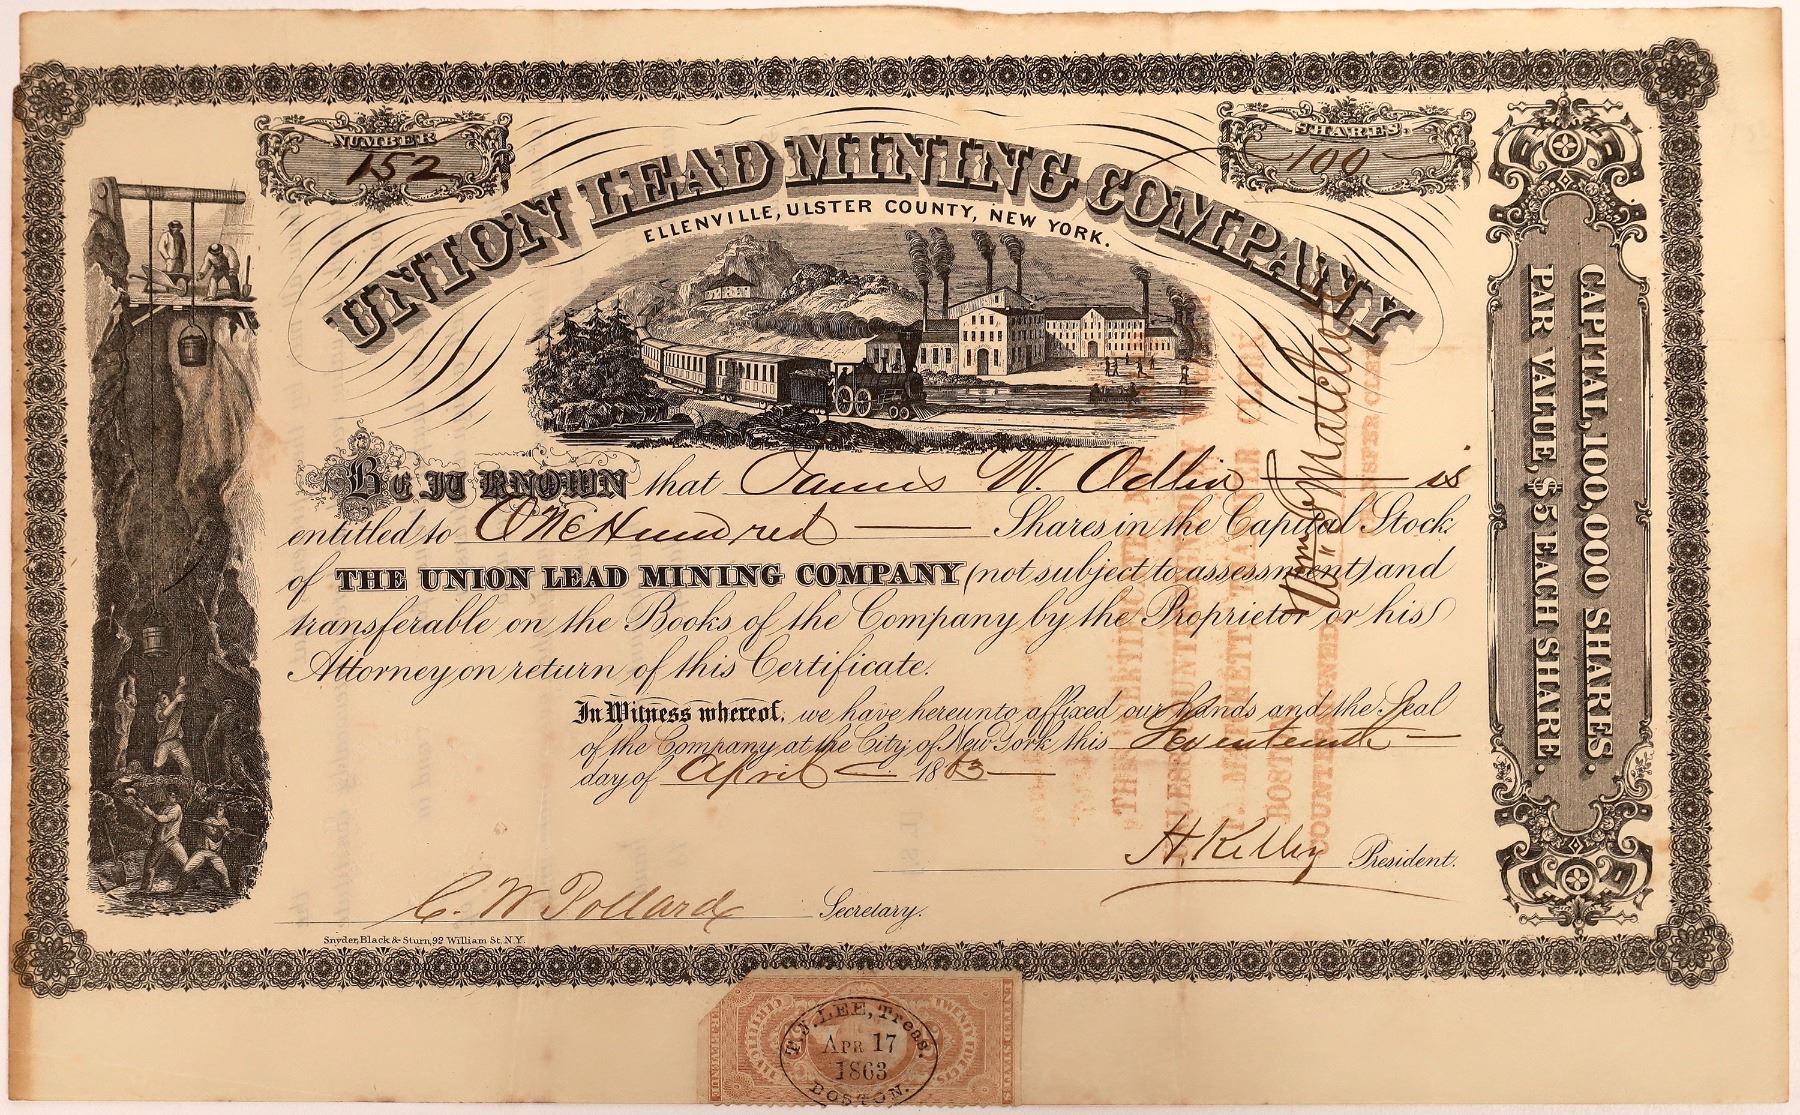 NUMBER
152
SHARES.
100
UNION LEAD MINING COMPANY
ELLENVILLE, ULSTER COUNTY, NEW YORK.
BE IT KNOWN that James W. Odlin is
entitled to One Hundred Shares in the Capital Stock
of THE UNION LEAD MINING COMPANY (not subject to assessment) and
transferable on the Books of the Company by the Proprietor or his
Attorney on return of this Certificate.
In Witness whereof, we have hereunto affixed our hands and the Seal
of the Company at the City of New York this Seventeenth
day of April 1863
H Kelley President.
C. W Pollard Secretary.
Snyder, Black & Sturn, 92 William St. N.Y.
CAPITAL, 100,000 SHARES.
PAR VALUE, $5 EACH SHARE.
BOSTON
COUNTERSIGNED
CLERK
T. J. LEE, Treas.
APR 17
1863
BOSTON.